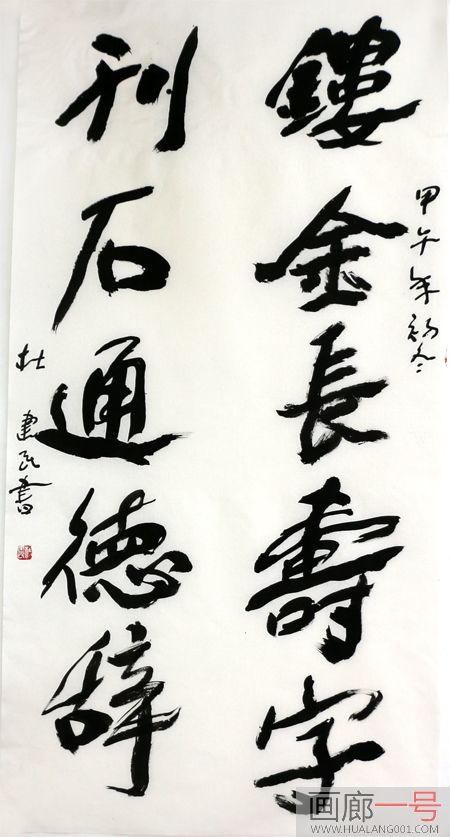 鏤金長壽字
甲午年初冬
刊石通德辞
杜建民書
画廊一号
WWW.HUALANG001.COM